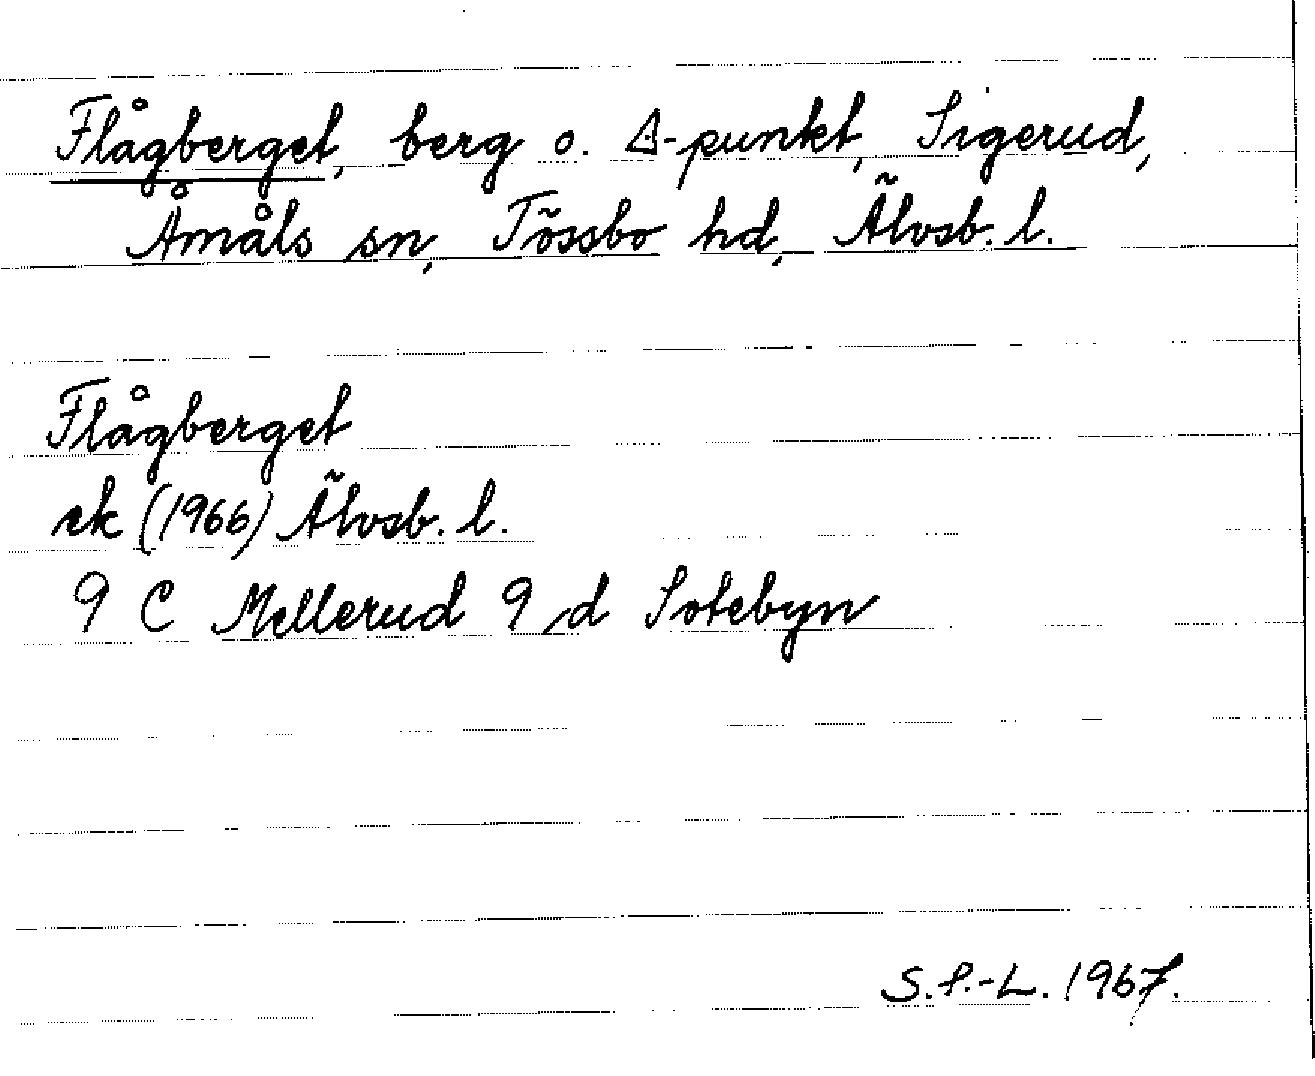 Flågberget, berg o. Δ-punkt, Sigerud,
Åmåls sn, Tössbo hd, Älvsb. l.
Flågberget
ek (1966) Älvsb. l.
9 C Mellerud 9 d Sotebyn
S.P.-L. 1967.